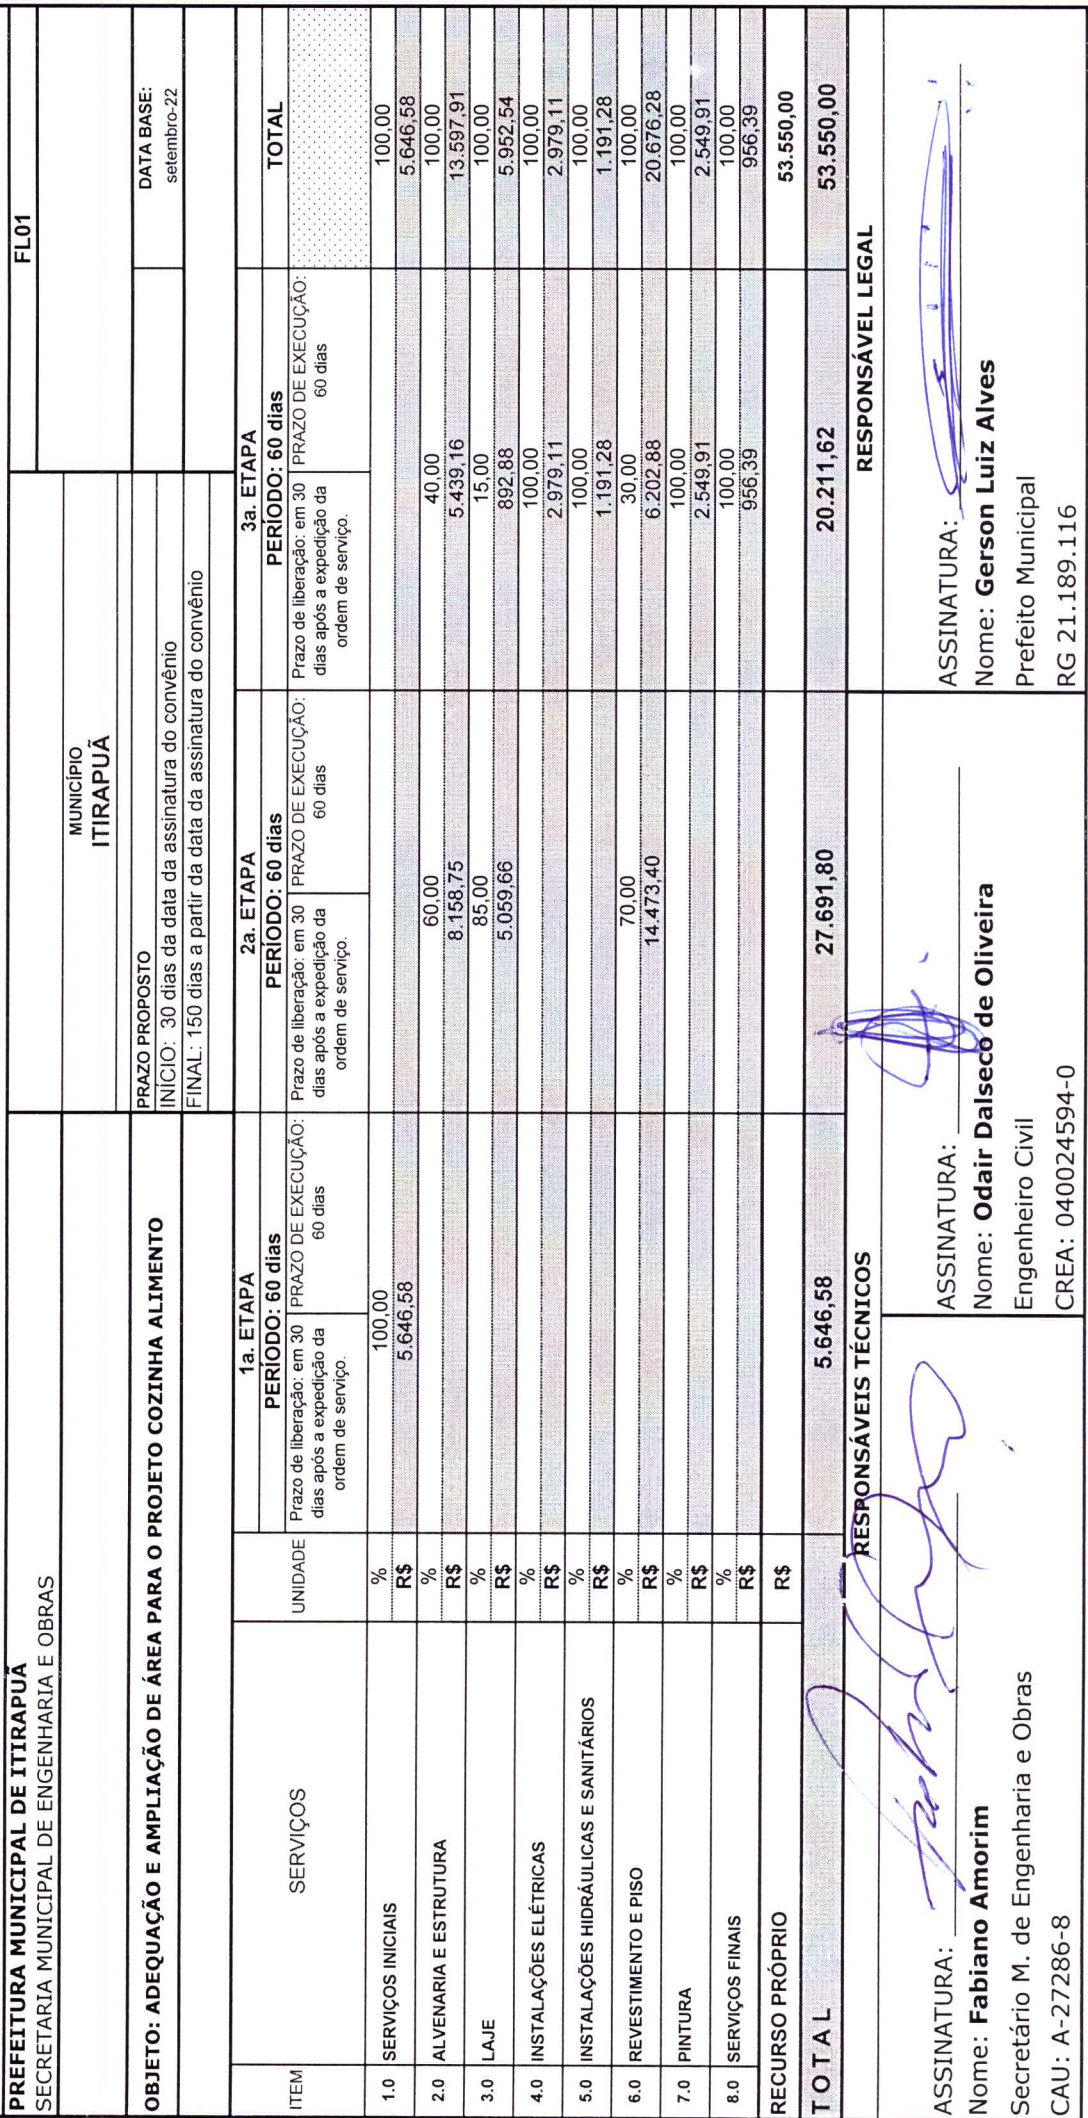 PREFEITURA MUNICIPAL DE ITIRAPUÃ
SECRETARIA MUNICIPAL DE ENGENHARIA E OBRAS
FL01
MUNICÍPIO
ITIRAPUÃ
OBJETO: ADEQUAÇÃO E AMPLIAÇÃO DE ÁREA PARA O PROJETO COZINHA ALIMENTO
PRAZO PROPOSTO
INÍCIO: 30 dias da data da assinatura do convênio
FINAL: 150 dias a partir da data da assinatura do convênio
DATA BASE:
setembro-22
ITEM SERVIÇOS UNIDADE 1a. ETAPA 2a. ETAPA 3a. ETAPA TOTAL
PERÍODO: 60 dias PERÍODO: 60 dias PERÍODO: 60 dias
Prazo de liberação: em 30 PRAZO DE EXECUÇÃO: Prazo de liberação: em 30 PRAZO DE EXECUÇÃO: Prazo de liberação: em 30 PRAZO DE EXECUÇÃO:
dias após a expedição da 60 dias dias após a expedição da 60 dias dias após a expedição da 60 dias
ordem de serviço. ordem de serviço. ordem de serviço.
1.0 SERVIÇOS INICIAIS % 100,00 100,00
R$ 5.646,58 5.646,58
2.0 ALVENARIA E ESTRUTURA % 60,00 40,00 100,00
R$ 8.158,75 5.439,16 13.597,91
3.0 LAJE % 85,00 15,00 100,00
R$ 5.059,66 892,88 5.952,54
4.0 INSTALAÇÕES ELÉTRICAS % 100,00 100,00
R$ 2.979,11 2.979,11
5.0 INSTALAÇÕES HIDRÁULICAS E SANITÁRIOS % 100,00 100,00
R$ 1.191,28 1.191,28
6.0 REVESTIMENTO E PISO % 70,00 30,00 100,00
R$ 14.473,40 6.202,88 20.676,28
7.0 PINTURA % 100,00 100,00
R$ 2.549,91 2.549,91
8.0 SERVIÇOS FINAIS % 100,00 100,00
R$ 956,39 956,39
RECURSO PRÓPRIO R$ 53.550,00
T O T A L 5.646,58 27.691,80 20.211,62 53.550,00
RESPONSÁVEIS TÉCNICOS RESPONSÁVEL LEGAL
ASSINATURA:
Nome: Fabiano Amorim
Secretário M. de Engenharia e Obras
CAU: A-27286-8
ASSINATURA:
Nome: Odair Dalseco de Oliveira
Engenheiro Civil
CREA: 040024594-0
ASSINATURA:
Nome: Gerson Luiz Alves
Prefeito Municipal
RG 21.189.116